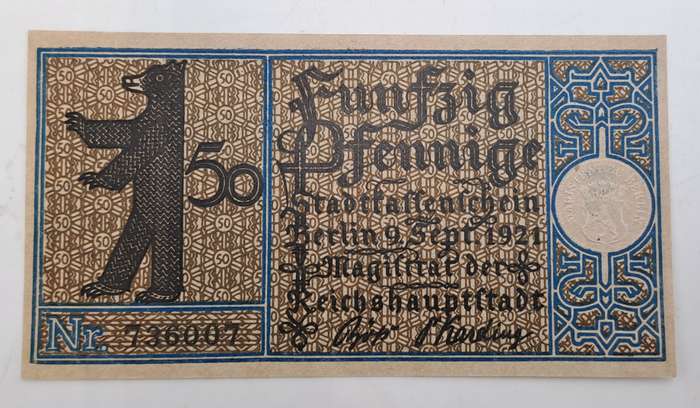 50
Fünfzig
Pfennige
Stadtkassenschein
Berlin 9. Sept. 1921
Magistrat der
Reichshauptstadt
Nr. 736007